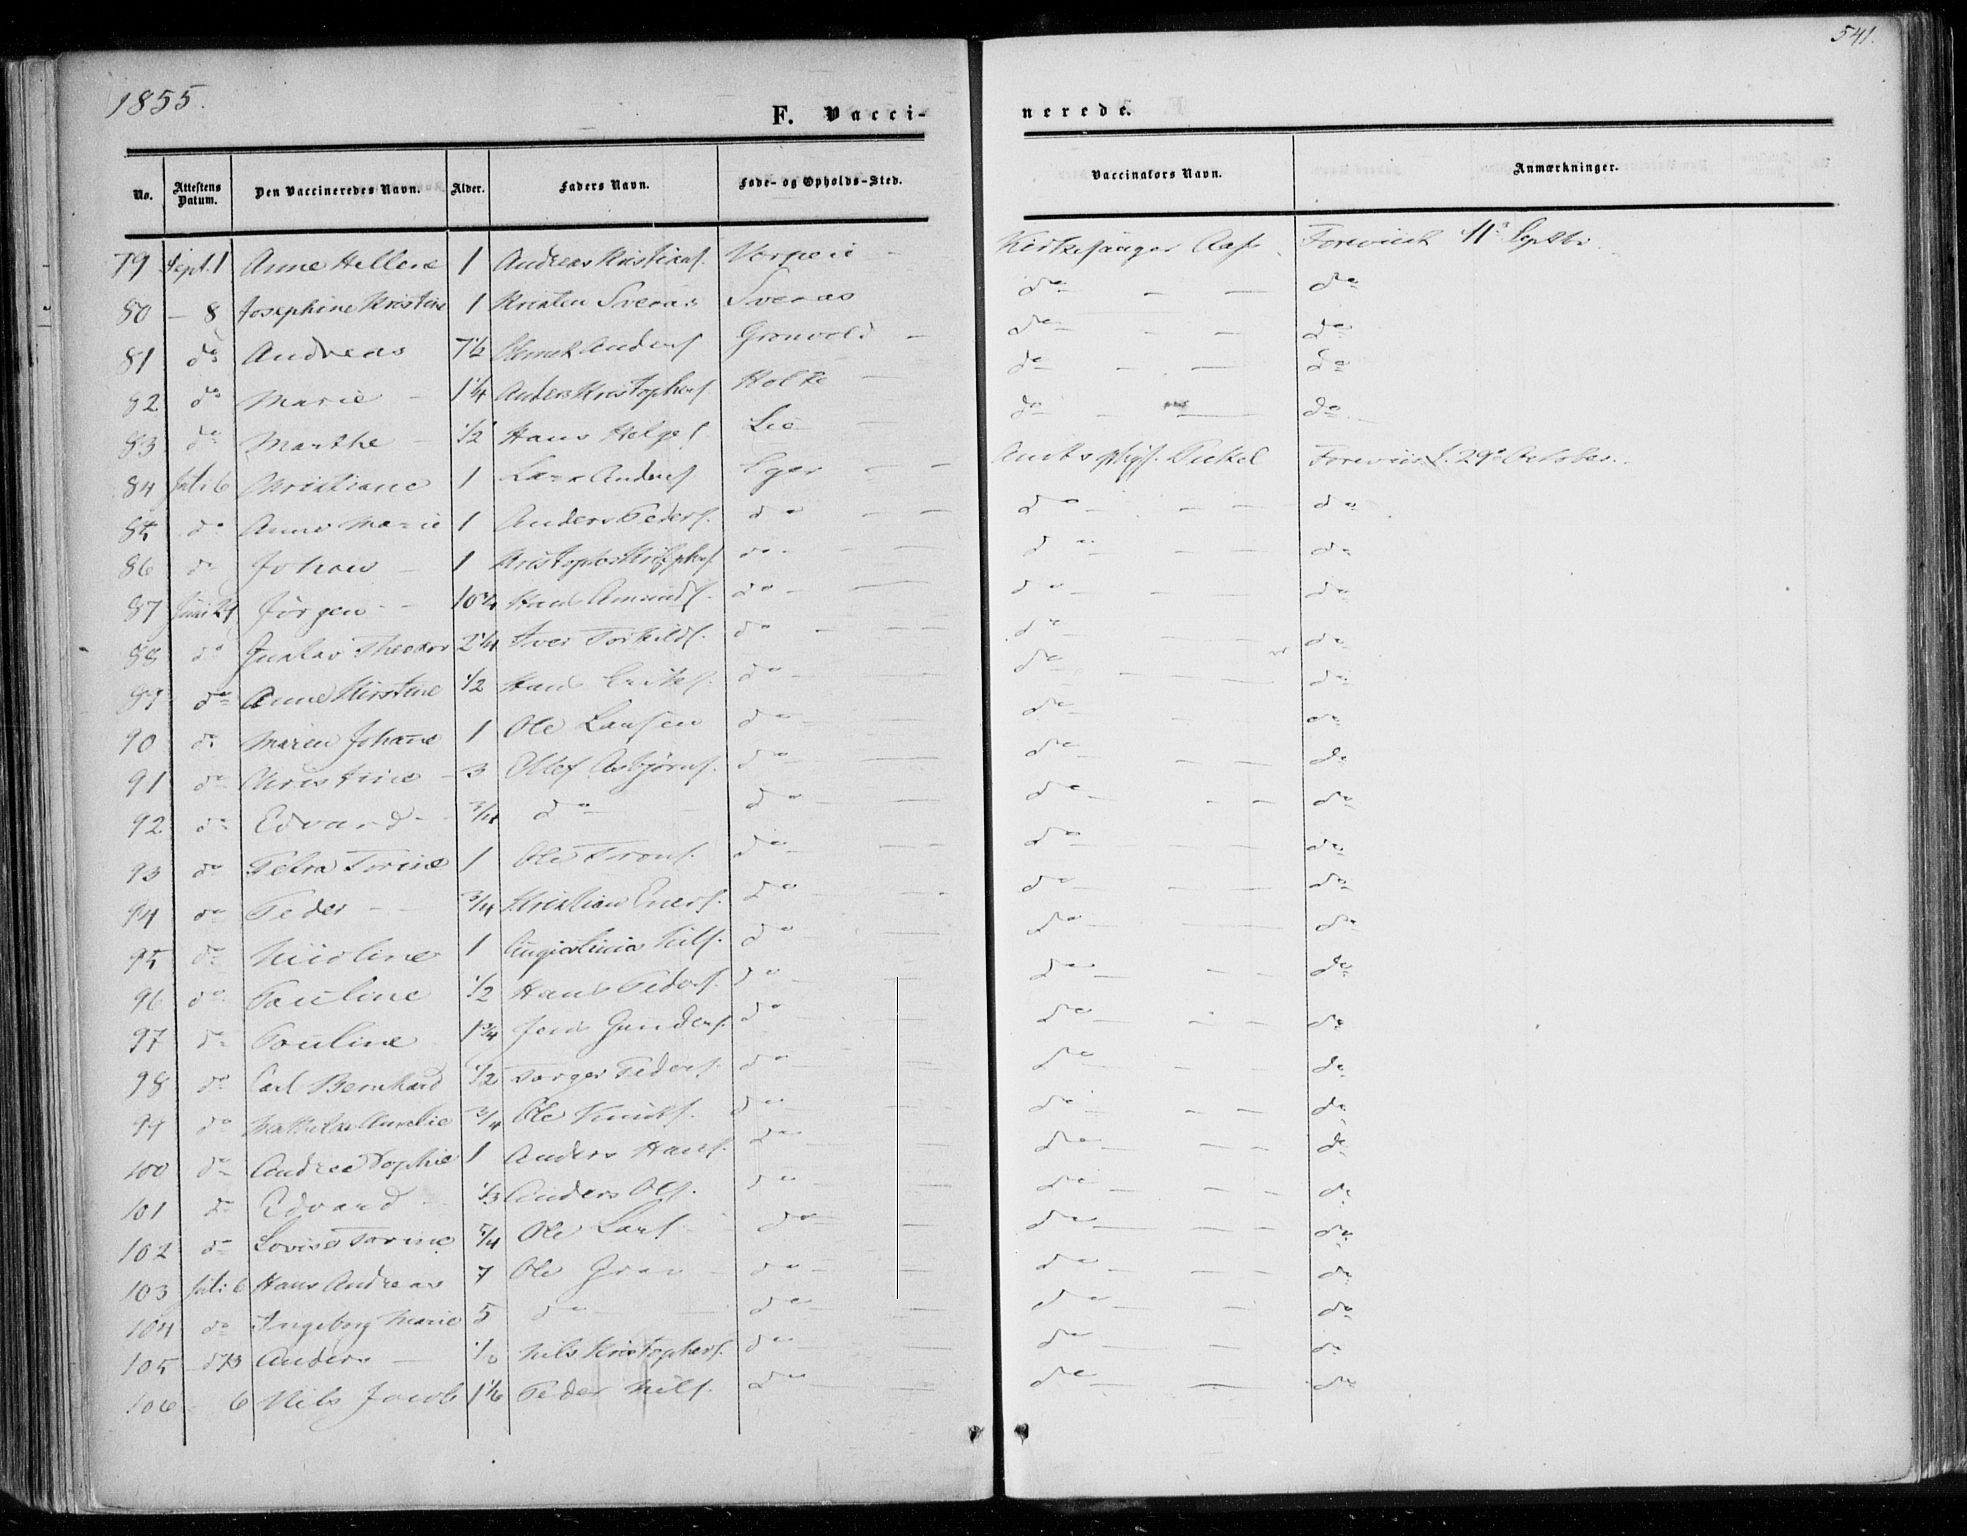 541.
1855.
F. Vacci-nerede.
No. Attestens Datum. Den Vaccineredes Navn. Alder. Faders Navn. Føde- og Opholds-Sted. Vaccinators Navn. Anmærkninger.
79 Sept. 1 Anne Hellene 1 Andreas Kristians. Kirkesanger Aas. Foreviist 11e Septbr.
80 — 8 Josephine Kristine 1 Kristen Sveraas Sveraas do — — do
81 do Andreas 7½ Anders. Grønvold — do — — do
82 do Marie — 1¼ Anders Kristophers. Holte — do — — do
83 do Marthe — ½ Hans Helges. Lie — do — — do
84 Juli 6 Christiane 1 Lars Anders. Eger — — Amtsphys. Foreviist. 29e October.
85 do Anne Marie 1 Anders Peders. do — — do — — do
86 do Johan — 1 do — — — do — — do
87 Juni 24 Jørgen — — 10¾ Hans Amunds. do — — — do — — do
88 do Gustav Theodor 2¼ Iver Torkilds. do — — do — — do
89 do Anne Kirstine ½ Hans Eriks. do — — do — — do
90 do Maren Johane 1 Ole Larsen do — — do — — do
91 do Christine — 3 Asbjørns. do — — do — — do
92 do Edvard — ¾ do — do — — do — — do
93 do Petra Torine 1 Ole do — — do — — do
94 do Peder — — ¾ Kristian do — — do — — do
95 do Nicoline 1 Nils. do — do — — do
96 do Pauline ½ Hans Peders. do — — do — — do
97 do Pouline 1¾ Jens Gunders. do — — do — — do
98 do Carl Bernhard ½ Torger Peders. do — — do — — do
99 do Mathilde Amelie ¾ Ole Knuts. do — — do — — do
100 do Andrea Sophie 1 Anders Hans. do — — do — — do
101 do Edvard — ⅓ Anders Ols. do — — do — — do
102 do Lovise Torine 5/4 Ole Lars. do — — do — — do
103 Juli 6 Hans Andreas 7 Ole — do — — do — — do
104 do Ingeborg Marie 5 do — do — — do — — do
105 Anders — Nils Kristophers. do — do — — do
106 — 6 Nils Jacob 1⅙ Peder Nils. do — — do — — do